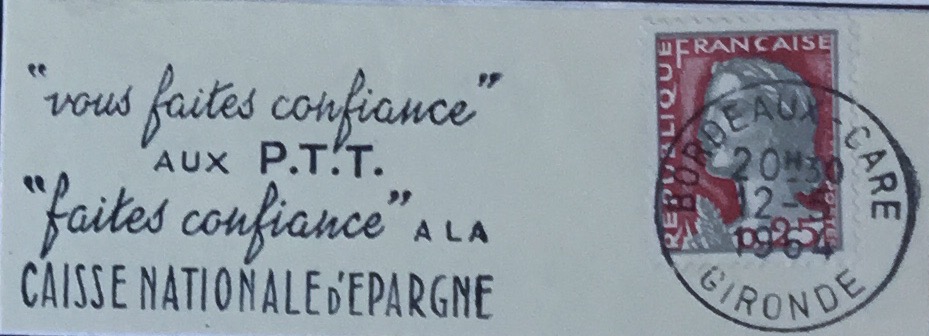 "vous faites confiance"
AUX P.T.T.
"faites confiance" A LA
CAISSE NATIONALE D'EPARGNE
REPUBLIQUE FRANCAISE
0,25
BORDEAUX-GARE
20H30
12-
1964
GIRONDE